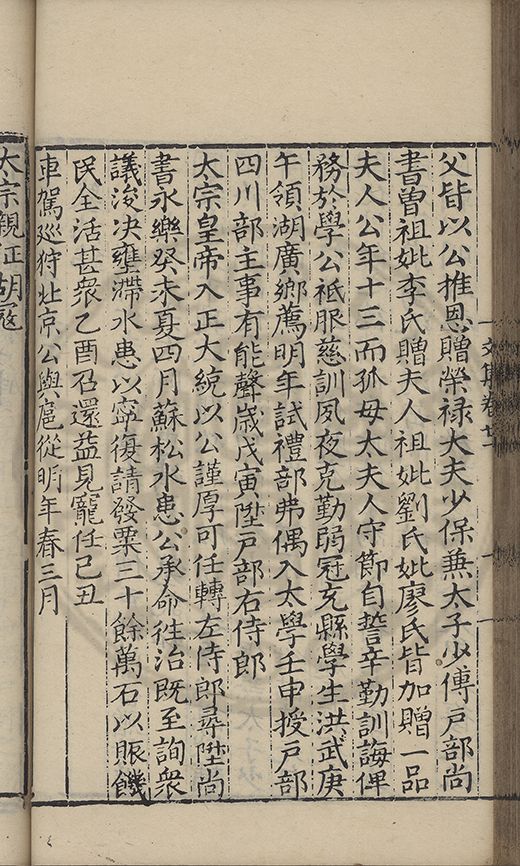 父皆以公推恩贈榮禄大夫少保兼太子少傅戸部尚
書曽祖妣李氏贈夫人祖妣劉氏妣廖氏皆加贈一品
夫人公年十三而孤母太夫人守節自誓辛勤訓誨俾
務於學公祗服慈訓夙夜克勤弱冠充縣學生洪武庚
午領湖廣鄉薦明年試禮部弗偶入太學壬申授戸部
四川部主事有能聲歲戊寅陞戸部右侍郎
太宗皇帝入正大統以公謹厚可任轉左侍郎尋陞尚
書永樂癸未夏四月蘇松水患公承命徃治既至詢衆
議浚决壅滯水患以寧復請發粟三十餘萬石以賑饑
民全活甚衆乙酉召還益見寵任己丑
車駕廵狩北京公與扈從明年春三月
太宗親征胡寇